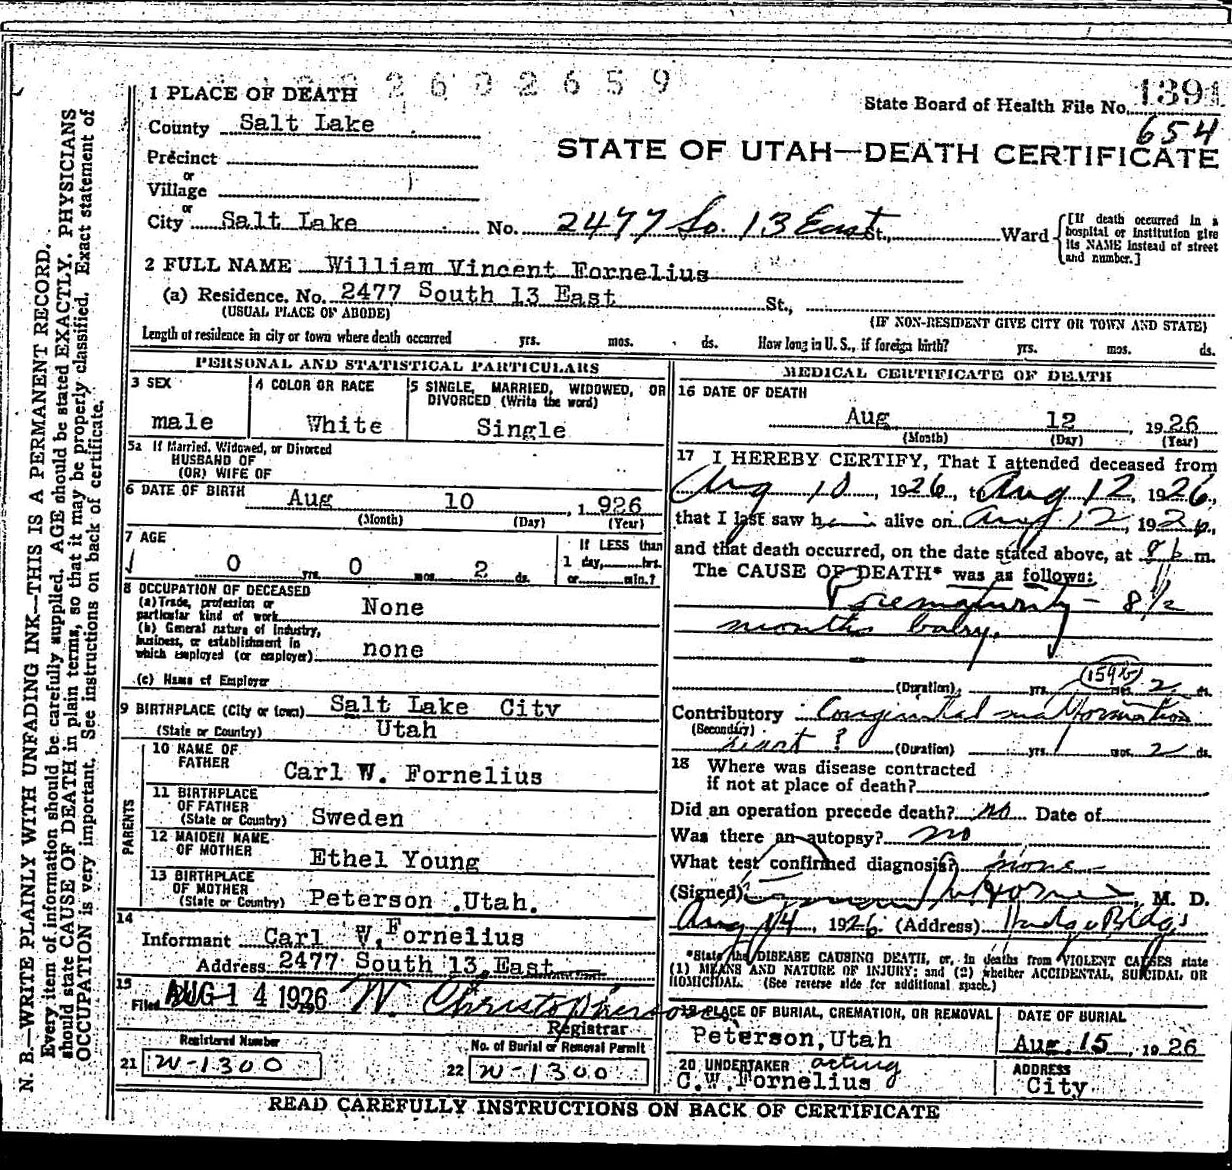 2602659
1 PLACE OF DEATH
State Board of Health File No. 1391
654
County Salt Lake
STATE OF UTAH—DEATH CERTIFICATE
Precinct
or
Village
or
City Salt Lake No. 2477 So. 13 East St., Ward
[If death occurred in a hospital or institution give its NAME instead of street and number.]
2 FULL NAME William Vincent Fornelius
(a) Residence. No. 2477 South 13 East St.,
(USUAL PLACE OF ABODE) (IF NON-RESIDENT GIVE CITY OR TOWN AND STATE)
Length of residence in city or town where death occurred yrs. mos. ds. How long in U. S., if foreign birth? yrs. mos. ds.
PERSONAL AND STATISTICAL PARTICULARS
3 SEX
male
4 COLOR OR RACE
White
5 SINGLE, MARRIED, WIDOWED, OR
DIVORCED (Write the word)
Single
5a If Married, Widowed, or Divorced
HUSBAND OF
(OR) WIFE OF
6 DATE OF BIRTH Aug 10, 1926
(Month) (Day) (Year)
7 AGE
0 yrs. 0 mos. 2 ds.
If LESS than
1 day, hrs.
or min.?
8 OCCUPATION OF DECEASED
(a) Trade, profession or
particular kind of work None
(b) General nature of industry,
business, or establishment in
which employed (or employer) none
(c) Name of Employer
9 BIRTHPLACE (City or town) Salt Lake City
(State or Country) Utah
PARENTS
10 NAME OF
FATHER
Carl W. Fornelius
11 BIRTHPLACE
OF FATHER
(State or Country) Sweden
12 MAIDEN NAME
OF MOTHER
Ethel Young
13 BIRTHPLACE
OF MOTHER
(State or Country) Peterson Utah.
14
Informant Carl W. Fornelius
Address 2477 South 13 East
15
Filed AUG 14 1926 W. Christopherson
Registrar
Registered Number
21 W-1300
No. of Burial or Removal Permit
22 W-1300
MEDICAL CERTIFICATE OF DEATH
16 DATE OF DEATH
Aug 12 1926
(Month) (Day) (Year)
17 I HEREBY CERTIFY, That I attended deceased from
Aug 10, 1926, to Aug 12, 1926,
that I last saw him alive on Aug 12, 1926,
and that death occurred, on the date stated above, at m.
The CAUSE OF DEATH* was as follows:
Prematurity - 8 1/2
months baby.
(Duration) yrs. mos. 2 ds.
Contributory Congenital malformation
(Secondary)
heart ? (Duration) yrs. mos. 2 ds.
18 Where was disease contracted
if not at place of death?
Did an operation precede death? no Date of
Was there an autopsy? no
What test confirmed diagnosis? none
(Signed) M. D.
Aug 14, 1926 (Address) Judge Bldg
*State the DISEASE CAUSING DEATH, or, in deaths from VIOLENT CAUSES state
(1) MEANS AND NATURE OF INJURY; and (2) whether ACCIDENTAL, SUICIDAL OR
HOMICIDAL. (See reverse side for additional space.)
19 PLACE OF BURIAL, CREMATION, OR REMOVAL
Peterson, Utah
DATE OF BURIAL
Aug. 15, 1926
20 UNDERTAKER acting
C.W. Fornelius
ADDRESS
City
READ CAREFULLY INSTRUCTIONS ON BACK OF CERTIFICATE
N. B.—WRITE PLAINLY WITH UNFADING INK—THIS IS A PERMANENT RECORD.
Every item of information should be carefully supplied. AGE should be stated EXACTLY. PHYSICIANS
should state CAUSE OF DEATH in plain terms, so that it may be properly classified. Exact statement of
OCCUPATION is very important. See instructions on back of certificate.